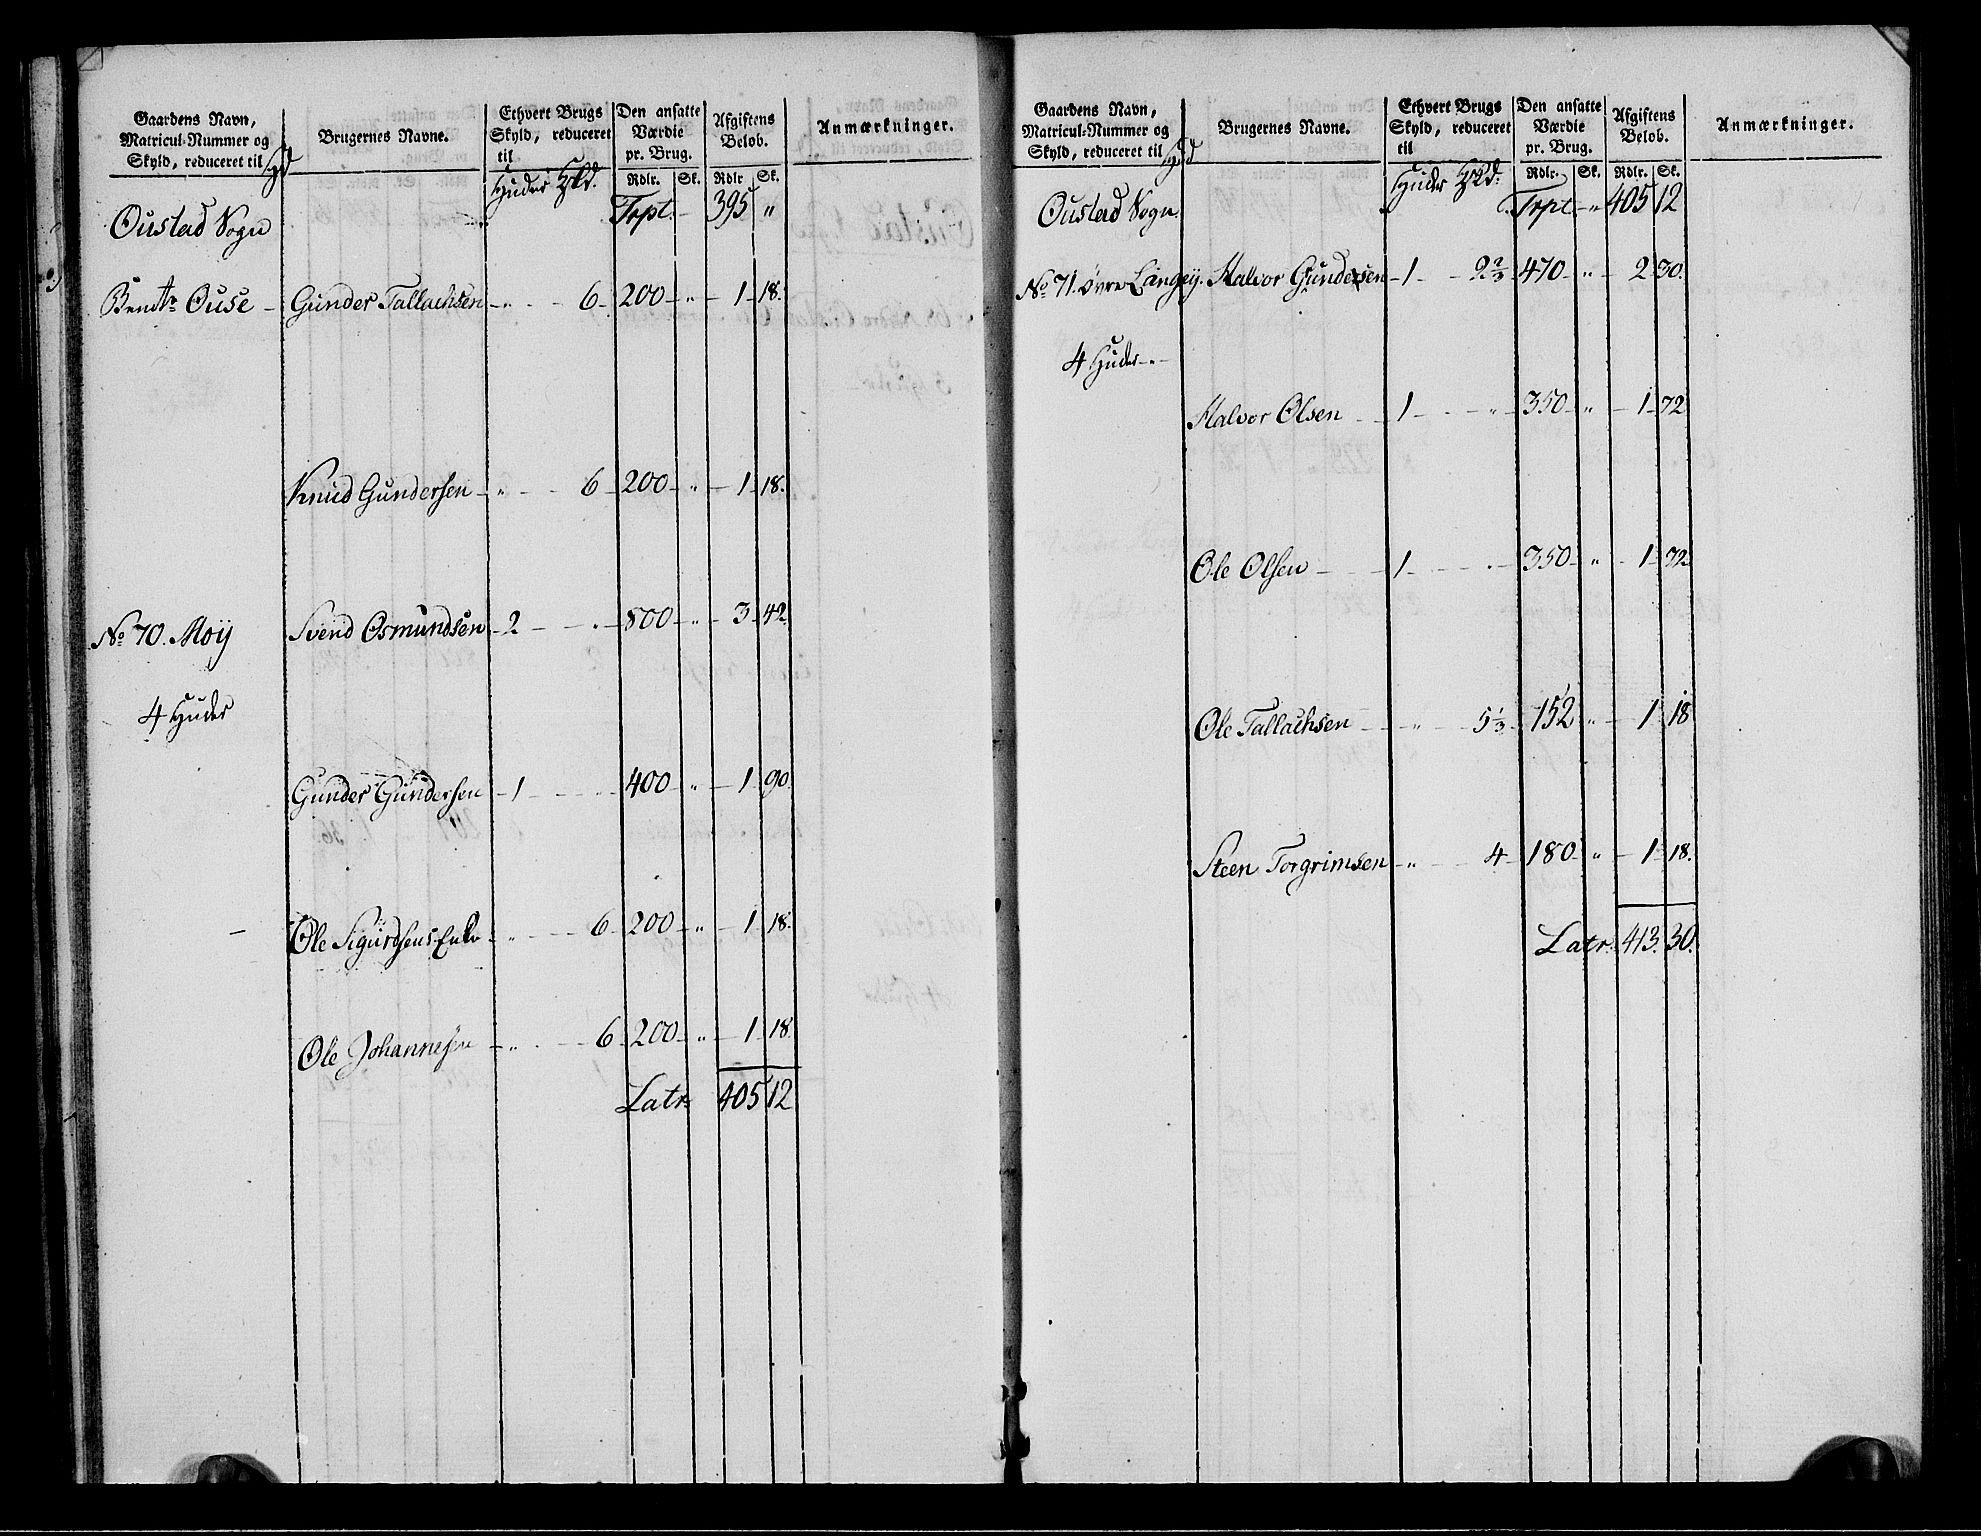 Gaardens Navn, Matricul-Nummer og Skyld, reduceret til Hd | Brugernes Navne. | Ethvert Brugs Skyld, reduceret til Huder | Den ansatte Værdie pr. Brug. Rdlr. Sk. | Afgiftens Beløb. Rdlr Sk. | Anmærkninger.
Oustad Sogn Trpt. – 395 „
Ouse – Gunder Tallachsen – „ – 6. 200 – „ – 1 – 18.
Knud Gundersen – „ – 6 – 200 – „ – 1 – 18.
No 70. Moÿ Svend Osmundsen – 2 – „ – 800 – „ – 3 – 42.
4 Huder
Gunder Gundersen – 1 – 400 – „ – 1 – 90.
Ole Sigurdsens Enke – „ – 6 – 200 – „ – 1 – 18.
Ole Johannesen – „ – 6 – 200 – „ – 1 – 18.
Latr: 405 12
Gaardens Navn, Matricul-Nummer og Skyld, reduceret til Hd | Brugernes Navne. | Ethvert Brugs Skyld, reduceret til Huder | Den ansatte Værdie pr. Brug. Rdlr. Sk. | Afgiftens Beløb. Rdlr. Sk. | Anmærkninger.
Oustad Sogn. Trpt – „ 405 12
No 71. øvre Langeÿ. Halvor Gundersen – 1 – 2 2/3 – 470 – „ – 2 30.
4 Huder – „ –
Halvor Olsen – 1 – „ – 350 – „ – 1 – 72
Ole Olsen – 1 – „ – 350 – „ – 1 – 72
Ole Tallachsen – „ – 5 1/3 – 152 „ – 1 18
Steen Torgrimsen – „ – 4 – 180 – „ – 1 – 18.
Latr. 413. 30.